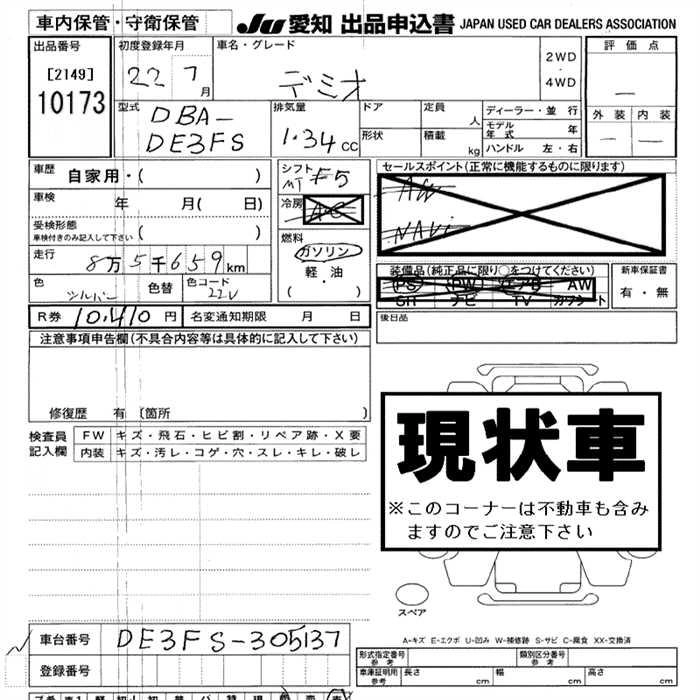 車内保管・守衛保管 JU 愛知 出品申込書 JAPAN USED CAR DEALERS ASSOCIATION
出品番号 初度登録年月 車名・グレード 評価点
[2149] 22 7月 デミオ 2WD・4WD —
10173 外装 内装
型式 DBA-DE3FS 排気量 1.34cc ドア 定員 人 ディーラー・並行
形状 積載 kg モデル年式 年
ハンドル 左・右
— —
車歴 自家用・( ) シフト MT F5 セールスポイント(正常に機能するものに限ります)
車検 年 月( 日) 冷房 A・C AW
受検形態 車検付きのみ記入して下さい ( ) NAVi
走行 8万5千659km 燃料 ガソリン・軽・油 ( ・ )
装備品(純正品に限り○をつけてください) 新車保証書
PS PW エアB AW 有・無
SR ナビ TV カワシート
色 シルバー 色替 色コード 22V
R券 10,410円 名変通知期限 月 日 後日品
注意事項申告欄(不具合内容等は具体的に記入して下さい)
修復歴 有〔箇所 〕
検査員記入欄 FW キズ・飛石・ヒビ割・リペア跡・X要
内装 キズ・汚レ・コゲ・穴・スレ・キレ・破レ
現状車
※このコーナーは不動車も含み
ますのでご注意下さい
スペア
A-キズ E-エクボ U-凹み W-補修跡 S-サビ C-腐食 XX-交換済
車台番号 DE3FS-305137
形式指定番号 参考 類別区分番号 参考
登録番号
車庫証明用 参考 長さ cm 幅 cm 高さ cm